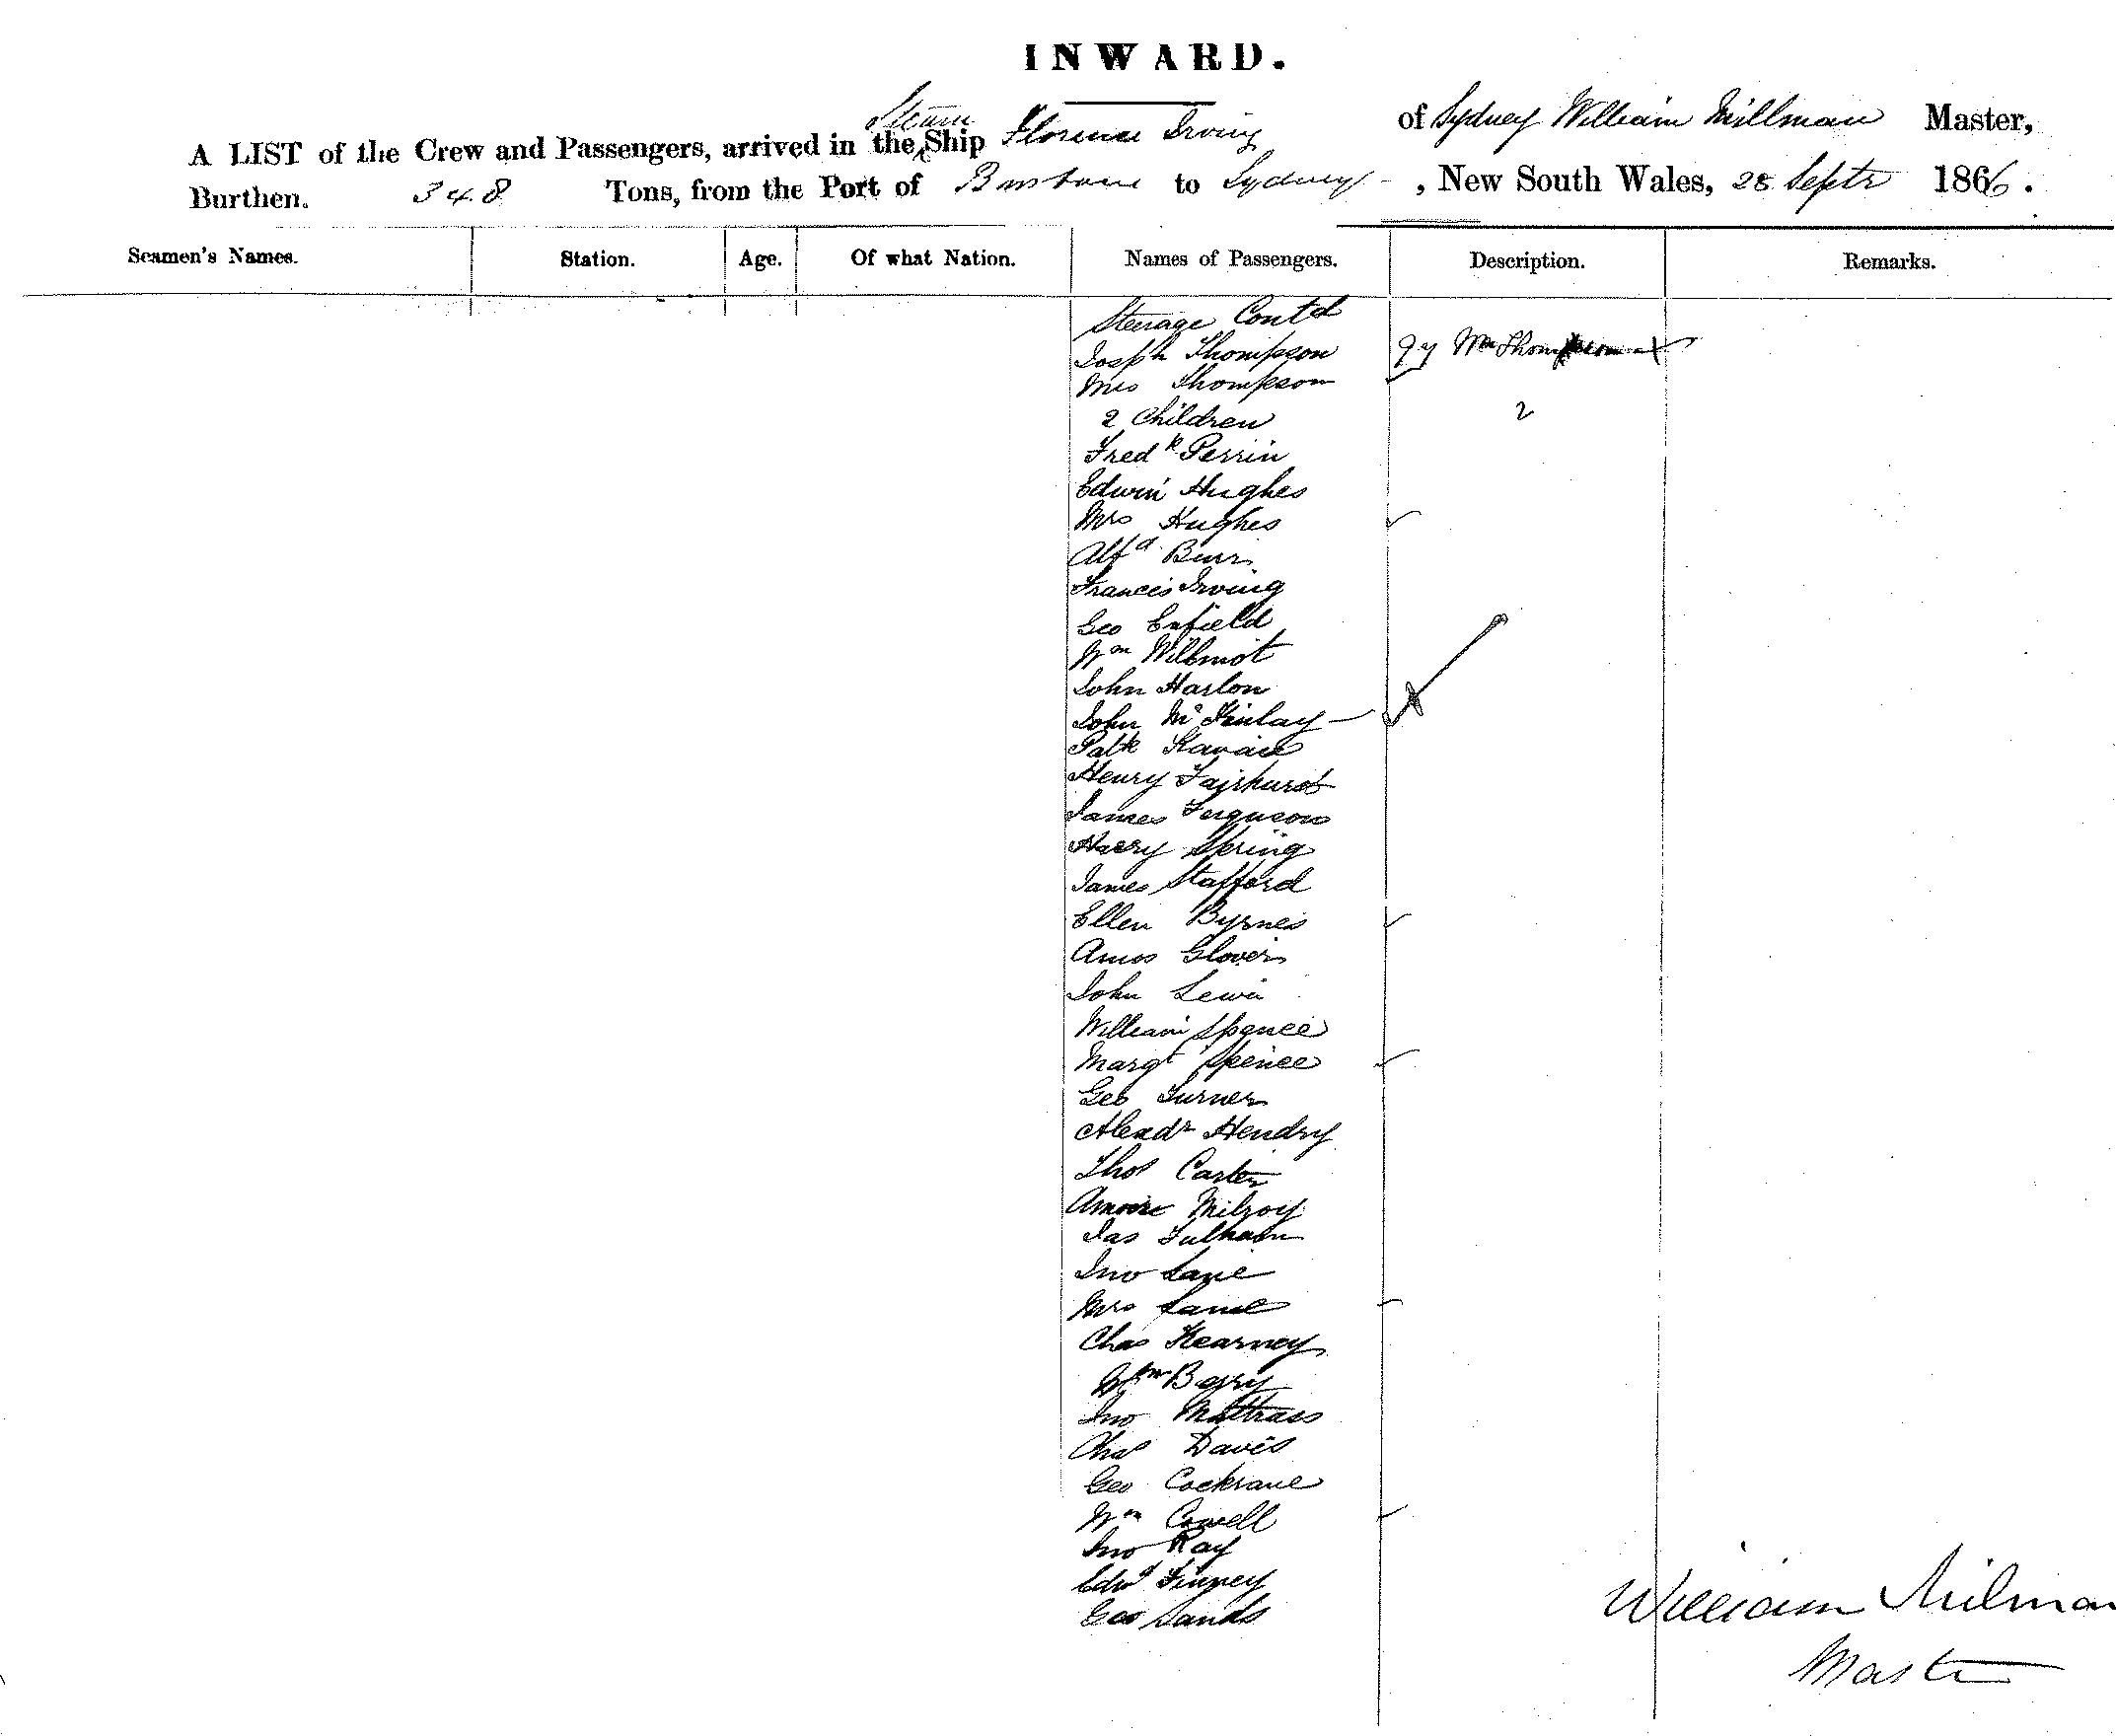 INWARD.
A LIST of the Crew and Passengers, arrived in the Steam Ship Florence Irving of Sydney William Millman Master,
Burthen. 348 Tons, from the Port of Brisbane to Sydney, New South Wales, 28 Septr 1866.
Seamen's Names. Station. Age. Of what Nation. Names of Passengers. Description. Remarks.
Steerage Contd
Joseph Thompson Wm Thompson
Mrs Thompson
2 Children 2
Fredk Perrin
Edwin Hughes
Mrs Hughes
Alfd Burr
Francis Irving
Geo Enfield
Wm Willmot
John Harlon
John McKinlay
Patk
Henry Fairhurst
James Ferguson
Harry Spring
James Stafford
Ellen Byrnes
Amos Glover
John Lewis
William Spence
Margt Spence
Geo Turner
Alexdr Hendry
Thos Carter
Milroy
Jas Fulham
Jno Lane
Mrs Lane
Chas Kearney
Wm Barry
Jno Mattrass
Chas Davis
Geo Cockrane
Wm Cowell
Jno Ray
Edwd Finney
Geo Sands
William Milman
Master